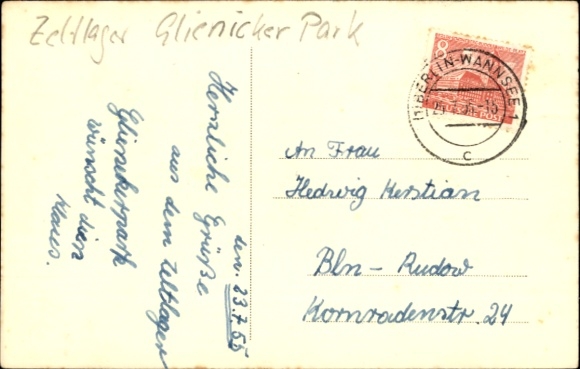 Zeltlager Glienicker Park
den. 23.7.55
Herzliche Grüße
aus dem Zeltlager
Glienickerpark
wünscht dir
Klaus.
8
BERLIN-WANNSEE 1
c
An Frau
Hedwig Kerstian
Bln - Rudow
Kornradenstr. 24